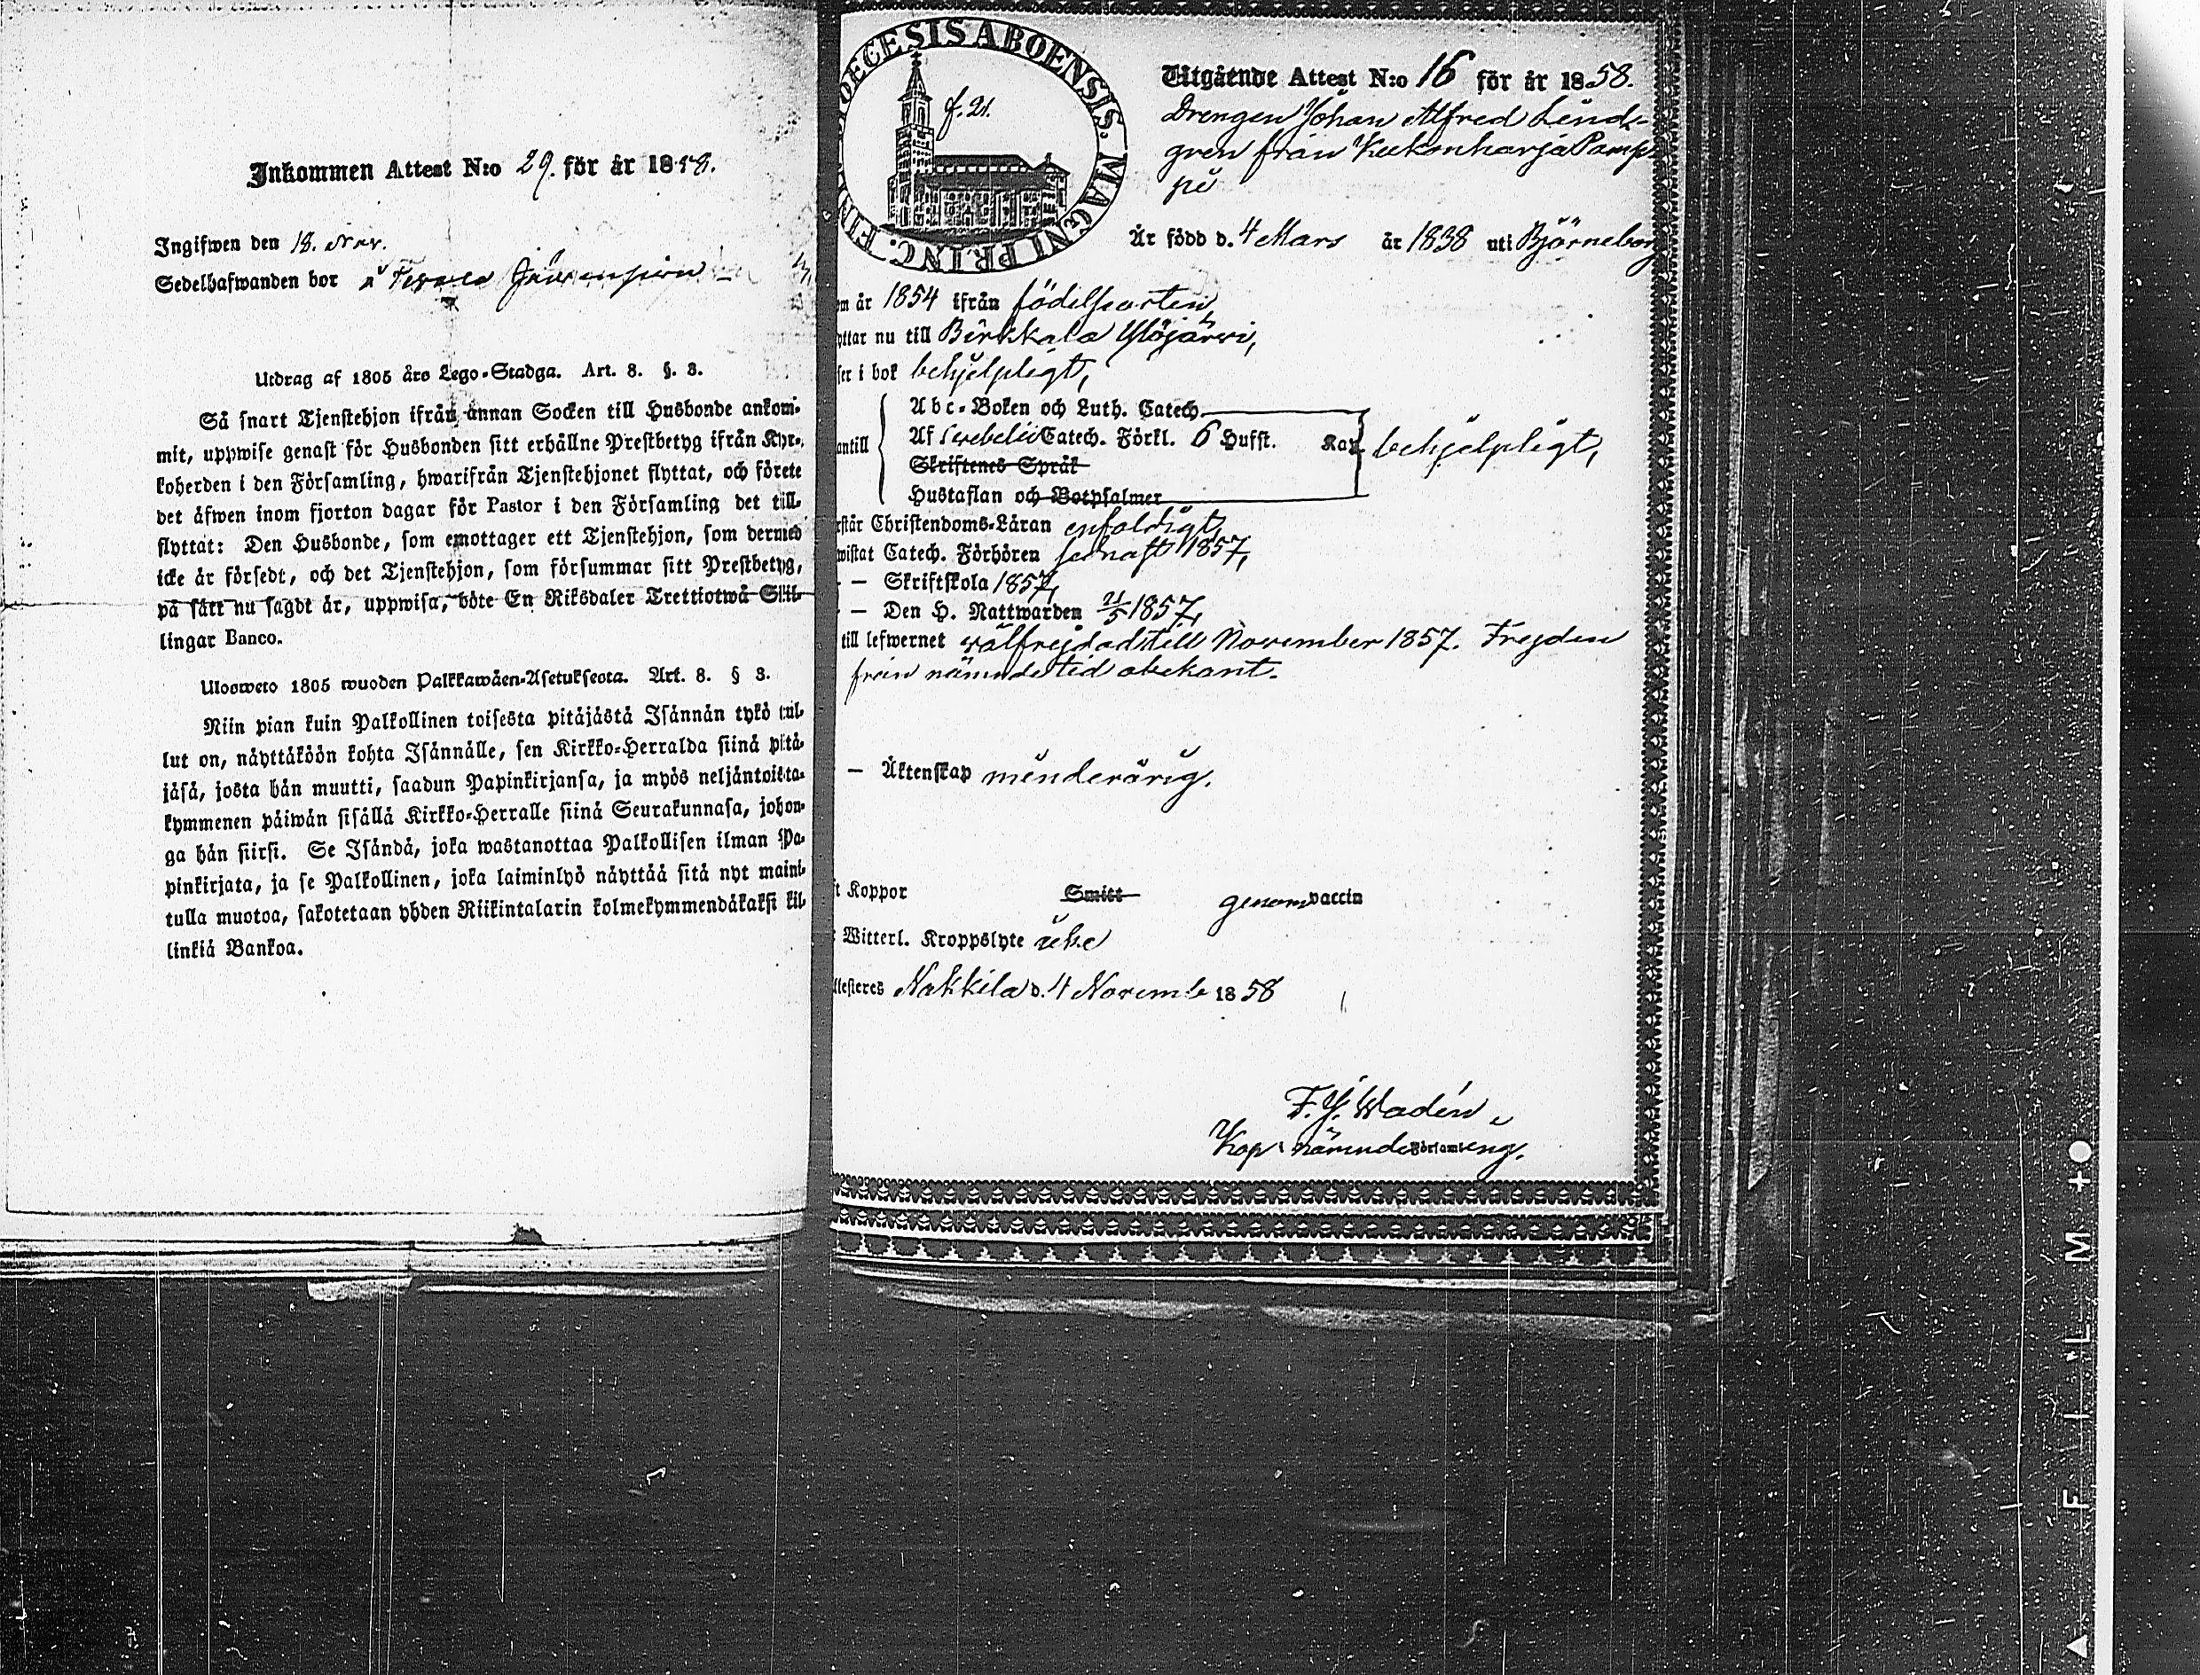 Inkommen Attest N:o 29. för år 1858.
Ingifwen den 18. Nov.
Sedelhafwanden bor
Utdrag af 1805 års Lego-Stadga. Art. 8. §. 3.
Så snart Tjenstehjon ifrån annan Socken till Husbonde ankom-
mit, uppwise genast för Husbonden sitt erhållne Prestbetyg ifrån Kyr-
koherden i den Församling, hwarifrån Tjenstehjonet flyttat, och förete
det äfwen inom fjorton dagar för Pastor i den Församling det till
flyttat: Den Husbonde, som emottager ett Tjenstehjon, som dermed
icke är försedt, och det Tjenstehjon, som försummar sitt Prestbetyg,
på sätt nu sagdt är, uppwisa, böte En Riksdaler Trettiotwå Skil-
lingar Banco.
Ulosweto 1805 wuoden Palkkawäen-Asetuksesta. Art. 8. § 3.
Niin pian kuin Palkollinen toisesta pitäjästä Isännän tykö tul-
lut on, näyttäköön kohta Isännälle, sen Kirkko-Herralda siinä pitä-
jäsä, josta hän muutti, saadun Papinkirjansa, ja myös neljäntoista-
kymmenen päiwän sisällä Kirkko-Herralle siinä Seurakunnasa, johon-
ga hän siirsi. Se Isändä, joka wastanottaa Palkollisen ilman Pa-
pinkirjata, ja se Palkollinen, joka laiminlyö näyttää sitä nyt maini-
tulla muotoa, sakotetaan yhden Riikintalarin kolmekymmendäkaksi kil-
linkiä Bankoa.
DIOECESIS ABOENSIS. MAGNI PRINC. FIN
f. 21.
Utgående Attest N:o 16 för år 1858.
Drengen Johan Alfred Lind-
gren från Keekonharja Pamp-
pi
Är född d. 4 Mars år 1838 uti Björneborg
år 1854 ifrån födelseorten,
yttar nu till Birkkala Ylöjärwi,
ser i bok behjelpligt,
Abc-Boken och Luth. Catech.
antill Af Swebelii Catech. Förkl. 6 Hufst. Kap behjelpligt,
Skriftenes Språk
Hustaflan och Botpsalmer
rstår Christendoms-Läran enfaldigt,
wistat Catech. Förhören sednast 1857,
— Skriftskola 1857,
— Den H. Nattwarden 21/5 1857,
till lefwernet wälfrejdad till November 1857. Frejden
från nämnde tid obekant.
— Äktenskap minderårig.
t Koppor Smitt genom vaccin
Witterl. Kroppslyte icke
ttesteres Nakkila d. 4 Novemb 1858
F. J. Wadén,
Kap. i nämnde Församling.
FILM